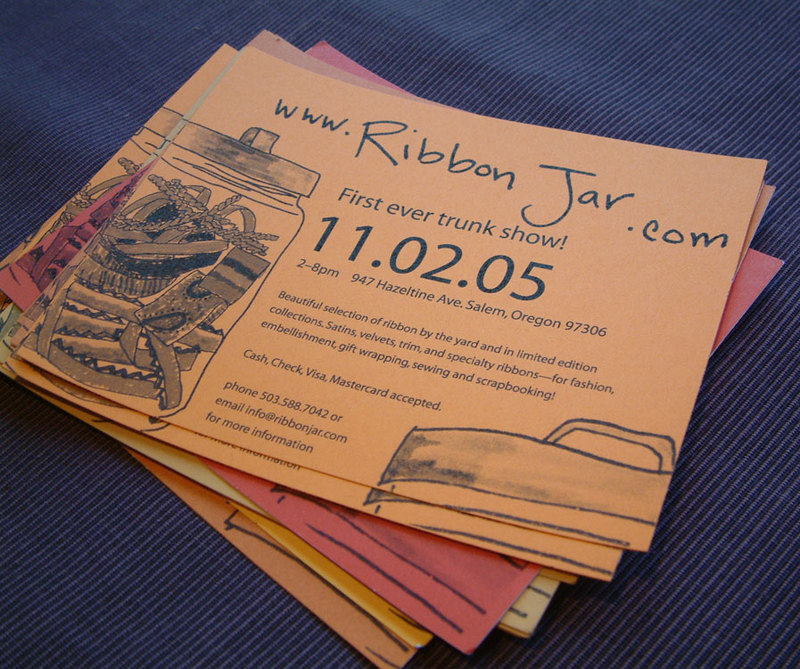 www.Ribbon Jar.com
First ever trunk show!
11.02.05
2–8pm 947 Hazeltine Ave. Salem, Oregon 97306
Beautiful selection of ribbon by the yard and in limited edition
collections. Satins, velvets, trim, and specialty ribbons—for fashion,
embellishment, gift wrapping, sewing and scrapbooking!
Cash, Check, Visa, Mastercard accepted.
phone 503.588.7042 or
email info@ribbonjar.com
for more information
for more information